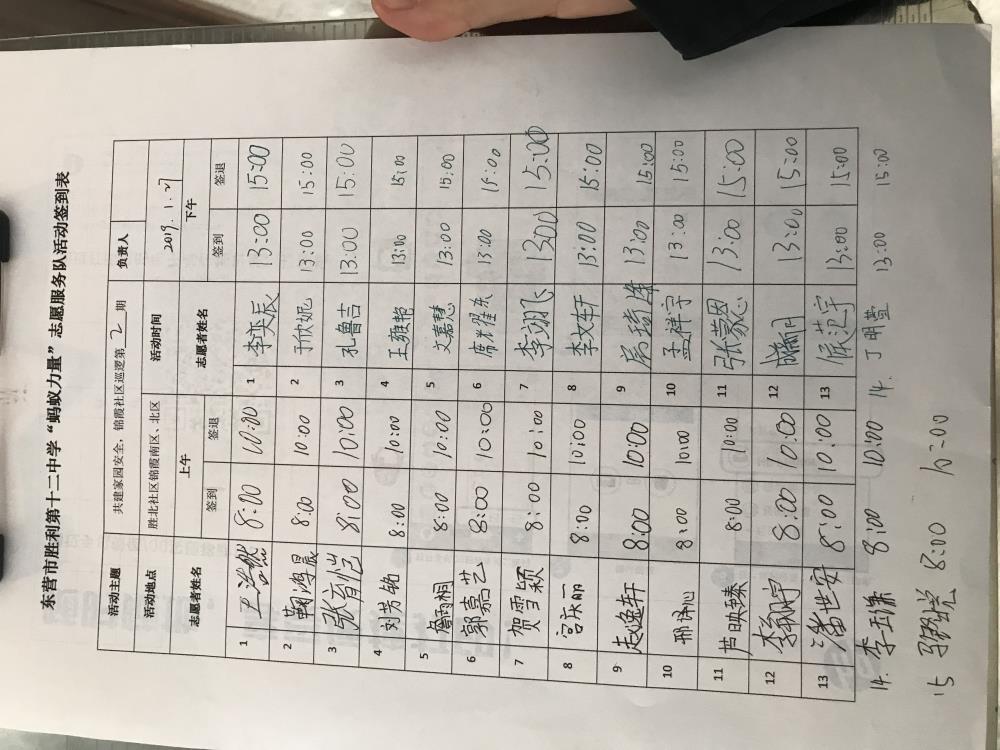 东营市胜利第十二中学“蚂蚁力量”志愿服务队活动签到表
活动主题 共建家园安全,锦霞社区巡逻第 2 期 负责人
活动地点 胜北社区锦霞南区、北区 活动时间 2019.1.21
志愿者姓名 上午 志愿者姓名 下午
签到 签退 签到 签退
1 王浩然 8:00 10:00 1 李奕辰 13:00 15:00
2 鞠鸿晨 8:00 10:00 2 于欣妮 13:00 15:00
3 张育恺 8:00 10:00 3 孔鲁吉 13:00 15:00
4 刘芳铭 8:00 10:00 4 王雅郡 13:00 15:00
5 詹雨桐 8:00 10:00 5 文嘉慧 13:00 15:00
6 郭嘉艺 8:00 10:00 6 13:00 15:00
7 贺雪颖 8:00 10:00 7 李翊飞 13:00 15:00
8 宫乐丽 8:00 10:00 8 李文轩 13:00 15:00
9 赵逸轩 8:00 10:00 9 13:00 15:00
10 邢译心 8:00 10:00 10 孟祥宇 13:00 15:00
11 芦映臻 8:00 10:00 11 张蒙恩 13:00 15:00
12 8:00 10:00 12 13:00 15:00
13 潘世安 8:00 10:00 13 13:00 15:00
14. 8:00 10:00 14. 丁明萱 13:00 15:00
15 8:00 10:00